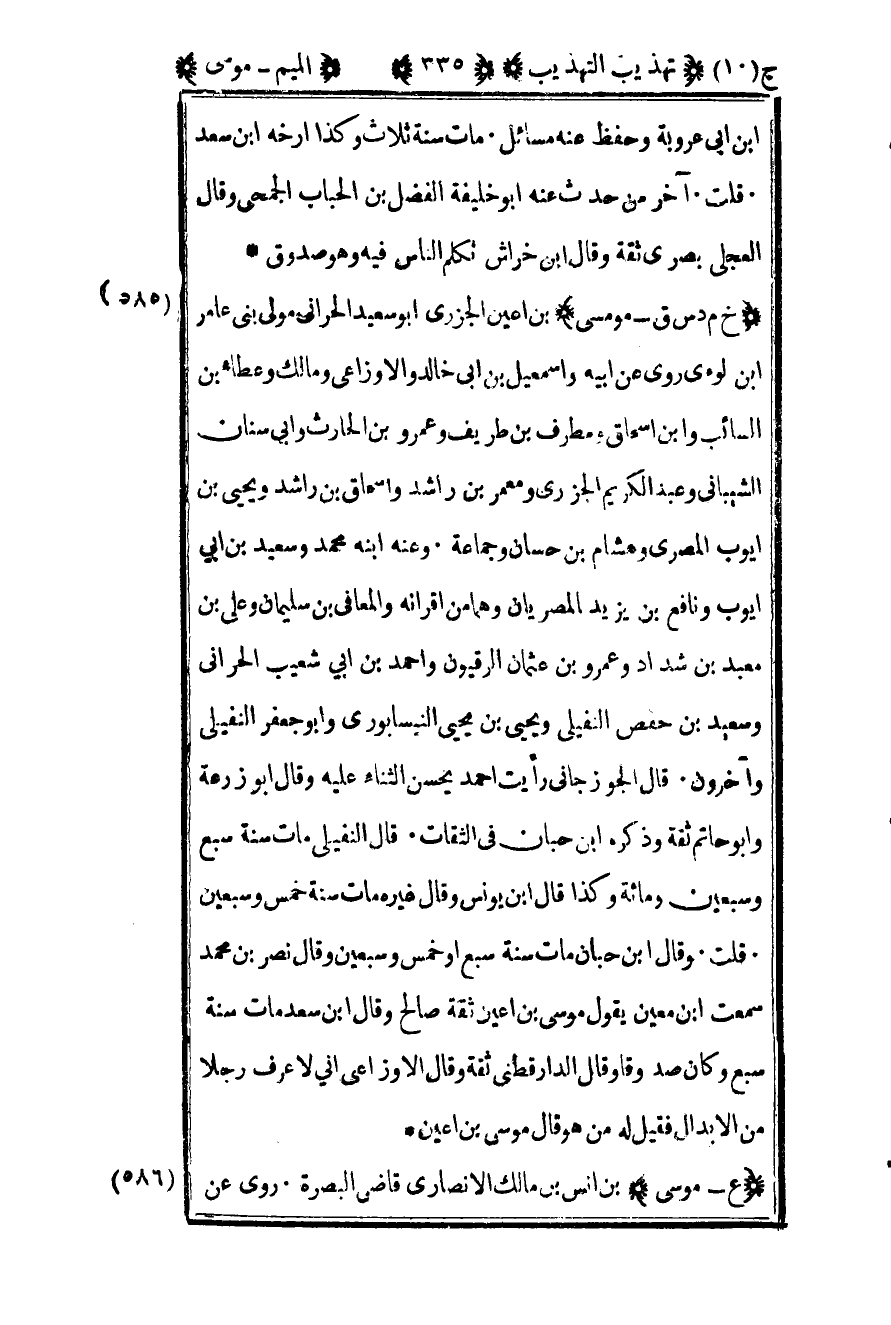 ج(١٠) ﴿ تهذيب التهذيب ﴾ ﴿ ٣٣٥ ﴾ ﴿ الميم ـ موسى ﴾
ابن ابي عروبة وحفظ عنه مسائل · مات سنة ثلاث وكذا ارخه ابن سعد
· قلت · آخر من حدث عنه ابو خليفة الفضل بن الحباب الجمحي وقال
العجلي بصرى ثقة وقال ابن خراش تكلم الناس فيه وهو صدوق *
﴿ خ م د س ق ـ موسى ﴾ بن اعين الجزرى ابو سعيد الحرانى مولى بنى عامر
(٥٨٥)
ابن لوءى روى عن ابيه واسمعيل بن ابى خالد والاوزاعى ومالك وعطاء بن
السائب وابن اسحاق ومطرف بن طريف وعمرو بن الحارث وابي سنان
الشيبانى وعبد الكريم الجزرى ومعمر بن راشد واسحاق بن راشد ويحيى بن
ايوب المصرى وهشام بن حسان وجماعة · وعنه ابنه محمد وسعيد بن ابي
ايوب ونافع بن يزيد المصريان وهما من اقرانه والمعافى بن سليمان وعلى بن
معبد بن شداد وعمرو بن عثمان الرقيون واحمد بن ابي شعيب الحرانى
وسعيد بن حفص النفيلى ويحيى بن يحيى النيسابورى وابو جعفر النفيلى
وآخرون · قال الجوزجانى رأيت احمد يحسن الثناء عليه وقال ابو زرعة
وابو حاتم ثقة وذكره ابن حبان فى الثقات · قال النفيلى مات سنة سبع
وسبعين ومائة وكذا قال ابن يونس وقال غيره مات سنة خمس وسبعين
· قلت · وقال ابن حبان مات سنة سبع او خمس وسبعين وقال نصر بن محمد
سمعت ابن معين يقول موسى بن اعين ثقة صالح وقال ابن سعد مات سنة
سبع وكان صدوقا وقال الدارقطنى ثقة وقال الاوزاعى اني لاعرف رجلا
من الابدال فقيل له من هو قال موسى بن اعين *
﴿ ع ـ موسى ﴾ بن انس بن مالك الانصارى قاضى البصرة · روى عن
(٥٨٦)